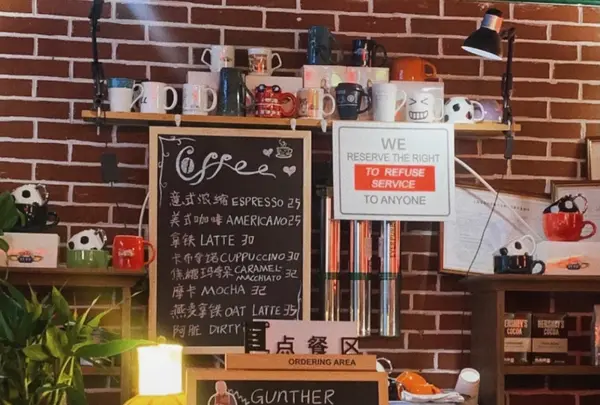 Coffee
意式浓缩 ESPRESSO 25
美式咖啡 AMERICANO 25
拿铁 LATTE 30
卡布拿诺 CUPPUCCINO 30
焦糖玛奇朵 CARAMEL MACCHIATO 32
摩卡 MOCHA 32
燕麦拿铁 OAT LATTE 35
阿脏 DIRTY
WE
RESERVE THE RIGHT
TO REFUSE
SERVICE
TO ANYONE
HERSHEY'S
COCOA
HERSHEY'S
COCOA
点餐区
ORDERING AREA
GUNTHER